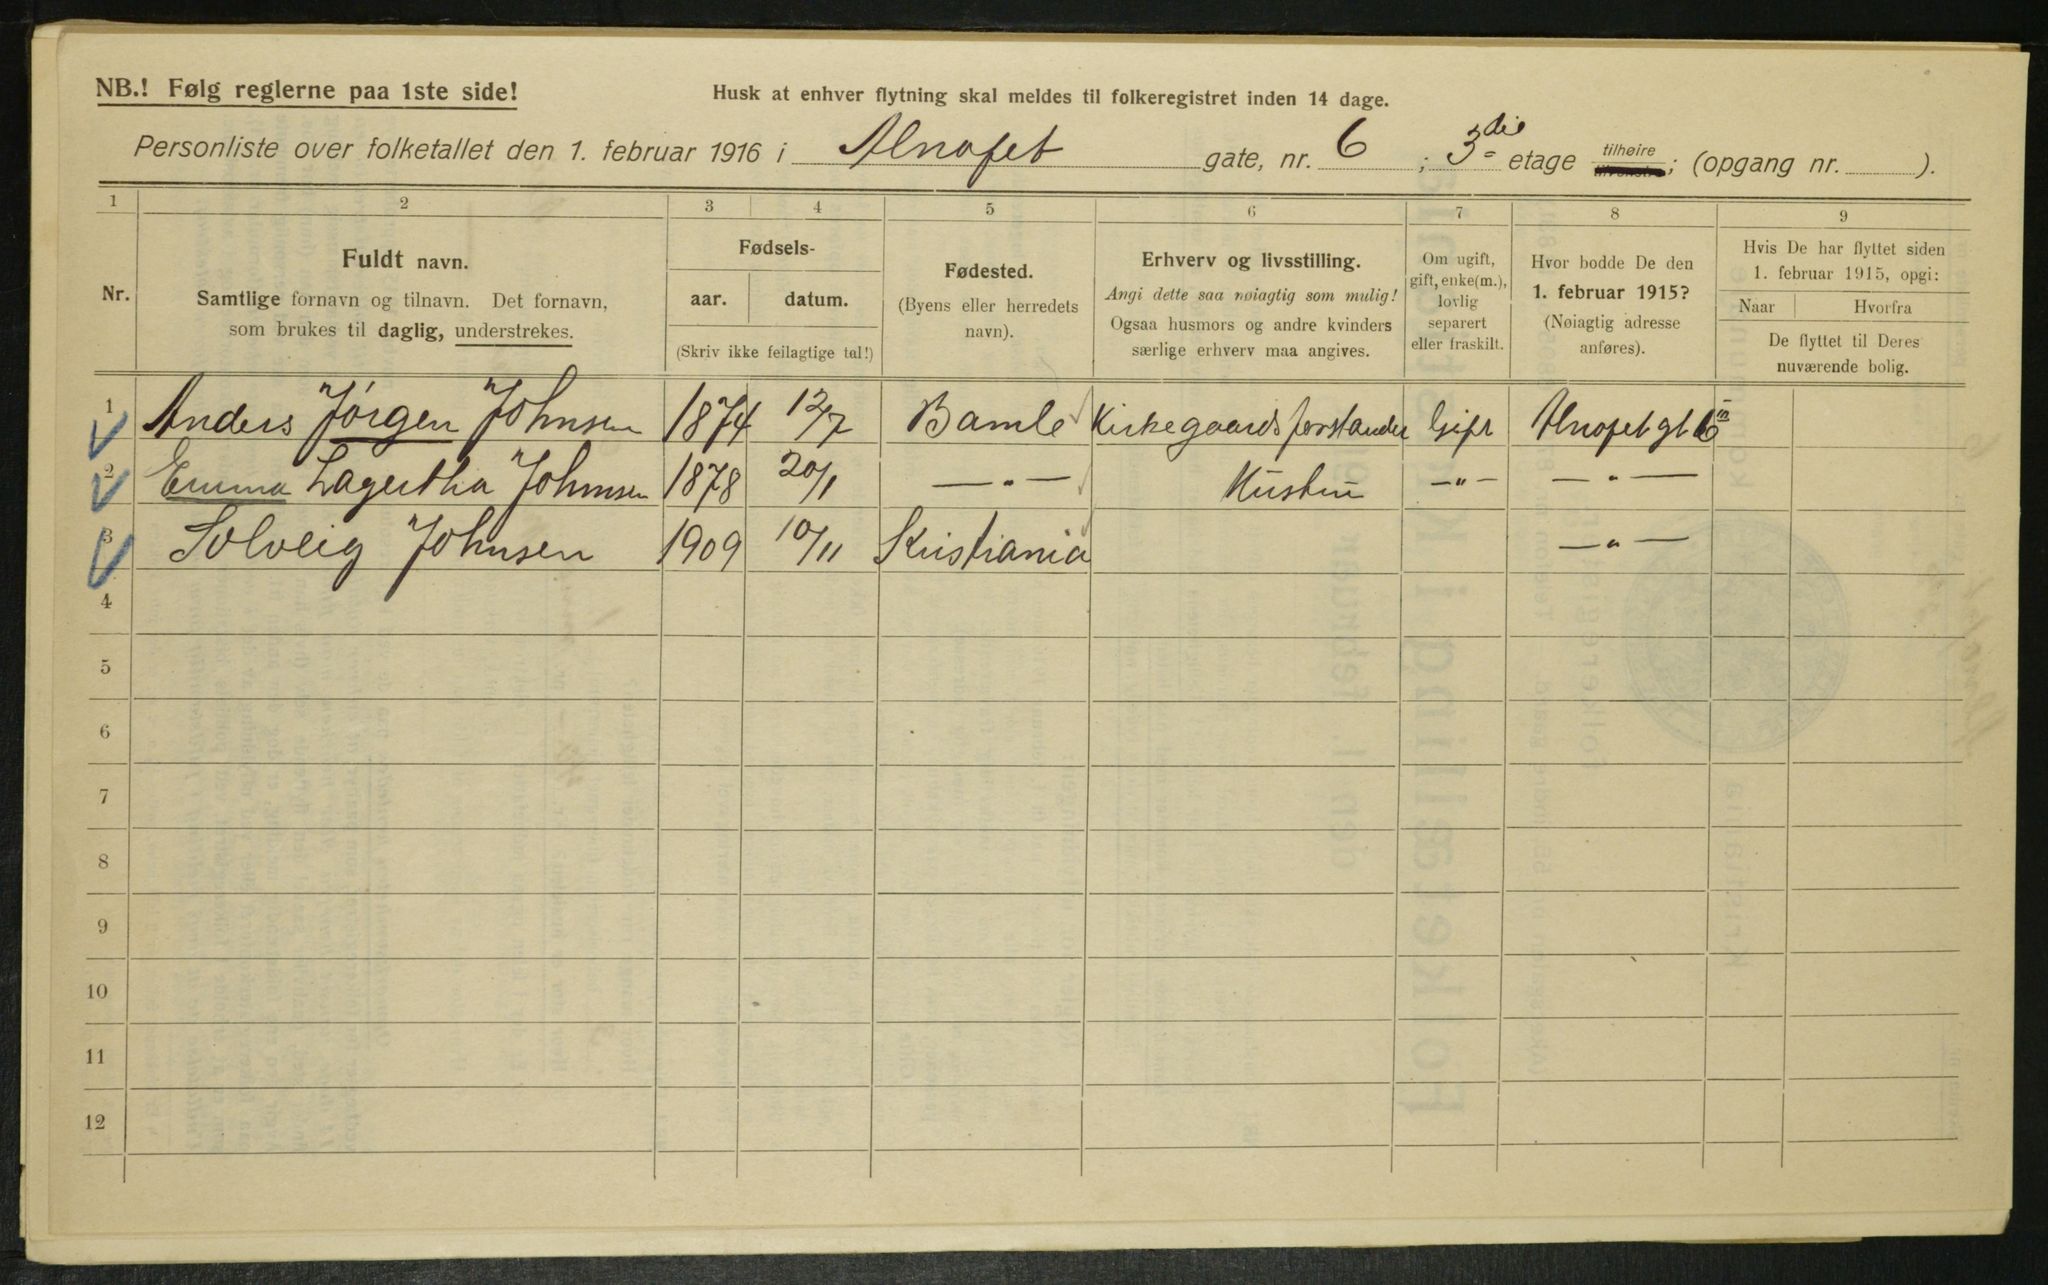 NB.! Følg reglerne paa 1ste side!
Husk at enhver flytning skal meldes til folkeregistret inden 14 dage.
Personliste over folketallet den 1. februar 1916 i Alnafet gate, nr. 6 ; 3die etage tilhøire ; (opgang nr. ).
1 2 3 4 5 6 7 8 9
Nr.
Fuldt navn.
Samtlige fornavn og tilnavn. Det fornavn,
som brukes til daglig, understrekes.
Fødsels-
aar. datum.
(Skriv ikke feilagtige tal!)
Fødested.
(Byens eller herredets
navn).
Erhverv og livsstilling.
Angi dette saa nøiagtig som mulig!
Ogsaa husmors og andre kvinders
særlige erhverv maa angives.
Om ugift,
gift, enke(m.),
lovlig
separert
eller fraskilt.
Hvor bodde De den
1. februar 1915?
(Nøiagtig adresse
anføres).
Hvis De har flyttet siden
1. februar 1915, opgi:
Naar Hvorfra
De flyttet til Deres
nuværende bolig.
1 Anders Jørgen Johnsen 1874 12/7 Bamle Kirkegaardsforstander Gift Alnafetgt 6
2 Emma Lagertha Johnsen 1878 20/1 — " — Hustru — " — — " —
3 Solveig Johnsen 1909 10/11 Kristiania — " —
4
5
6
7
8
9
10
11
12